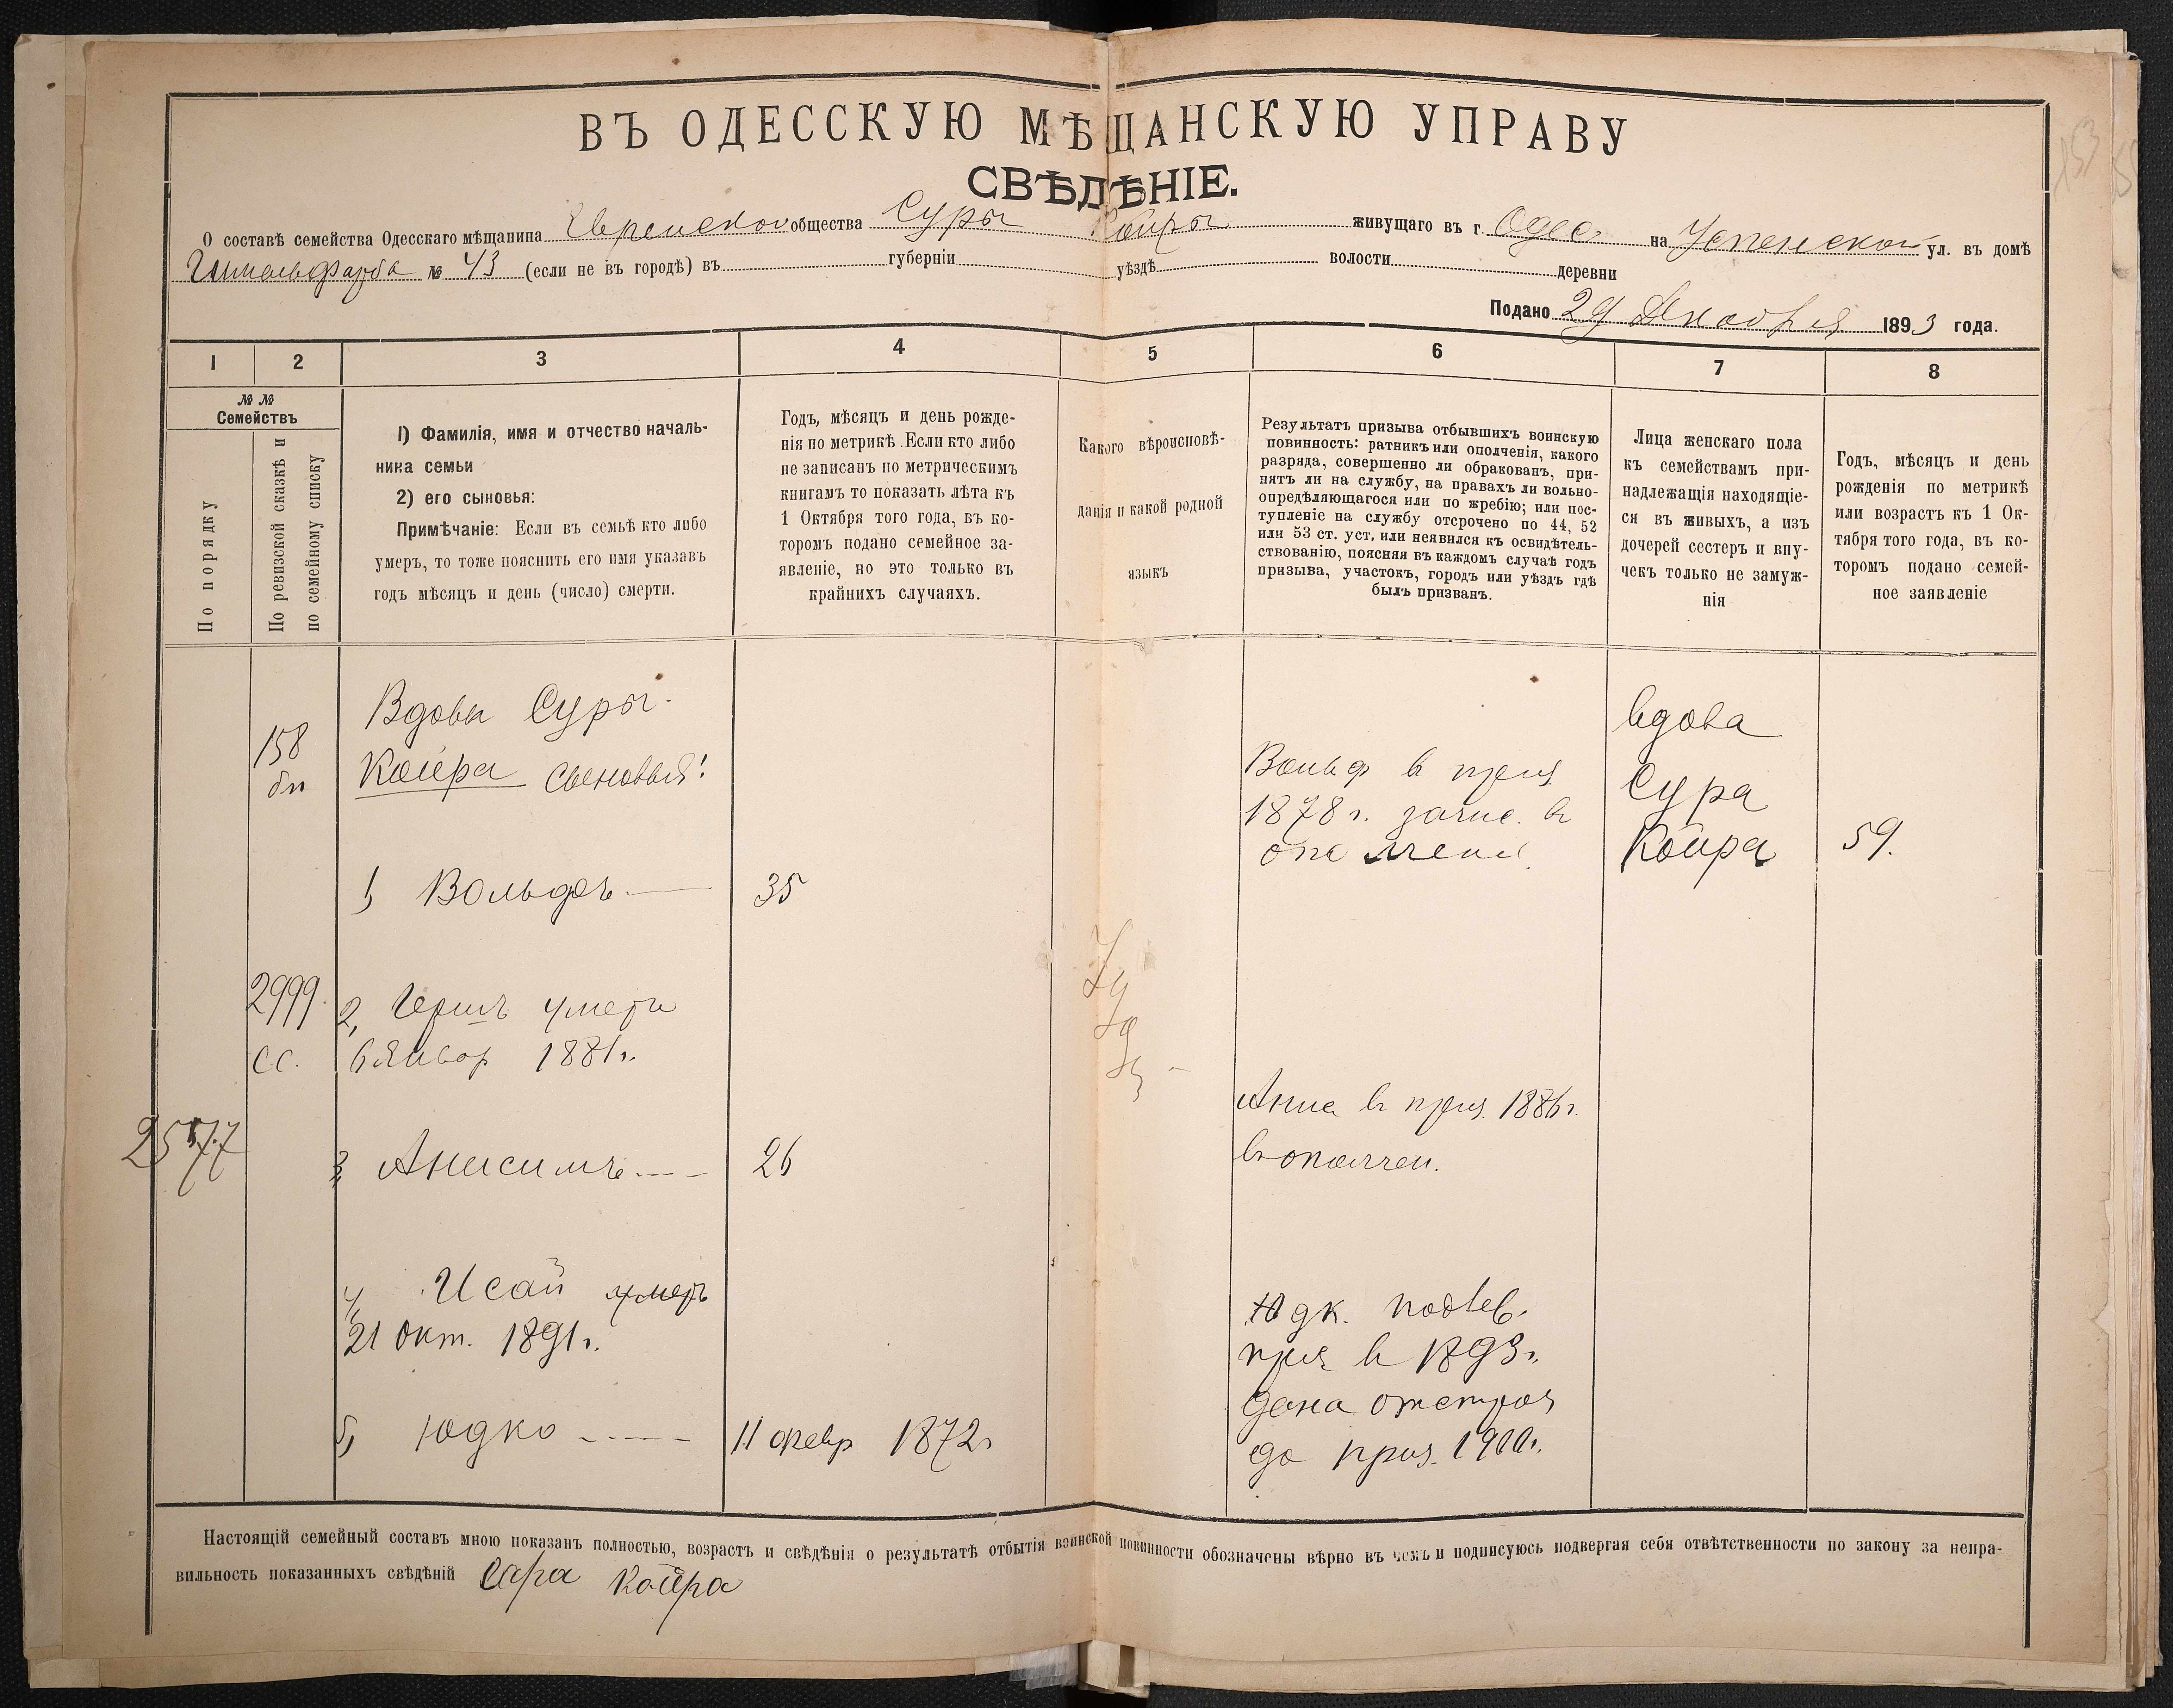 ВЪ ОДЕССКУЮ МѢЩАНСКУЮ УПРАВУ
СВѢДѢНІЕ.
О составѣ семейства Одесскаго мѣщанина Еврейскаго общества Суры Койры живущаго въ г. Одес. на Успенской ул. въ домѣ
Гиммельфарба № 43 (если не въ городѣ) въ губерніи уѣздѣ волости деревни
Подано 29 Декабря 1893 года.
1 2 3 4 5 6 7 8
№ №
Семействъ
По порядку
По ревизской сказкѣ и
по семейному списку
1) Фамилія, имя и отчество началь-
ника семьи
2) его сыновья:
Примѣчаніе: Если въ семьѣ кто либо
умеръ, то тоже пояснить его имя указавъ
годъ мѣсяцъ и день (число) смерти.
Годъ, мѣсяцъ и день рожде-
нія по метрикѣ. Если кто либо
не записанъ по метрическимъ
книгамъ то показать лѣта къ
1 Октября того года, въ ко-
торомъ подано семейное за-
явленіе, но это только въ
крайнихъ случаяхъ.
Какого вѣроисповѣ-
данія и какой родной
языкъ
Результатъ призыва отбывшихъ воинскую
повинность: ратникъ или ополченія, какого
разряда, совершенно ли обракованъ, при-
нятъ ли на службу, на правахъ ли вольно-
опредѣляющагося или по жребію; или пос-
тупленіе на службу отсрочено по 44, 52
или 53 ст. уст. или неявился къ освидѣтель-
ствованію, поясняя въ каждомъ случаѣ годъ
призыва, участокъ, городъ или уѣздъ гдѣ
былъ призванъ.
Лица женскаго пола
къ семействамъ при-
надлежащія находящіе-
ся въ живыхъ, а изъ
дочерей сестеръ и вну-
чекъ только не замуж-
нія
Годъ, мѣсяцъ и день
рожденія по метрикѣ
или возрастъ къ 1 Ок-
тября того года, въ ко-
торомъ подано семей-
ное заявленіе
158
бп
Вдовы Суры
Койра сыновья:
1, Вольфъ 35
Вольф в приз.
1878 г. зачис. в
ополчен.
вдова
Сура
Койра 59.
2999.
СС.
2, Гершъ умеръ
6 Январ 1881 г.
2577
3, Анисимъ 26
Анис в приз. 1886 г.
в ополчен.
4, Исай умеръ
21 Окт. 1891 г.
5, Юдко 11 февр 1872 г
Юдк. подлеж.
приз в 1893 г.
дана отстроч
до приз. 1900 г.
Настоящій семейный составъ мною показанъ полностью, возрастъ и свѣдѣнія о результатѣ отбытія воинской повинности обозначены вѣрно въ чемъ и подписуюсь подвергая себя отвѣтственности по закону за непра-
вильность показанныхъ свѣдѣній Сура Койра